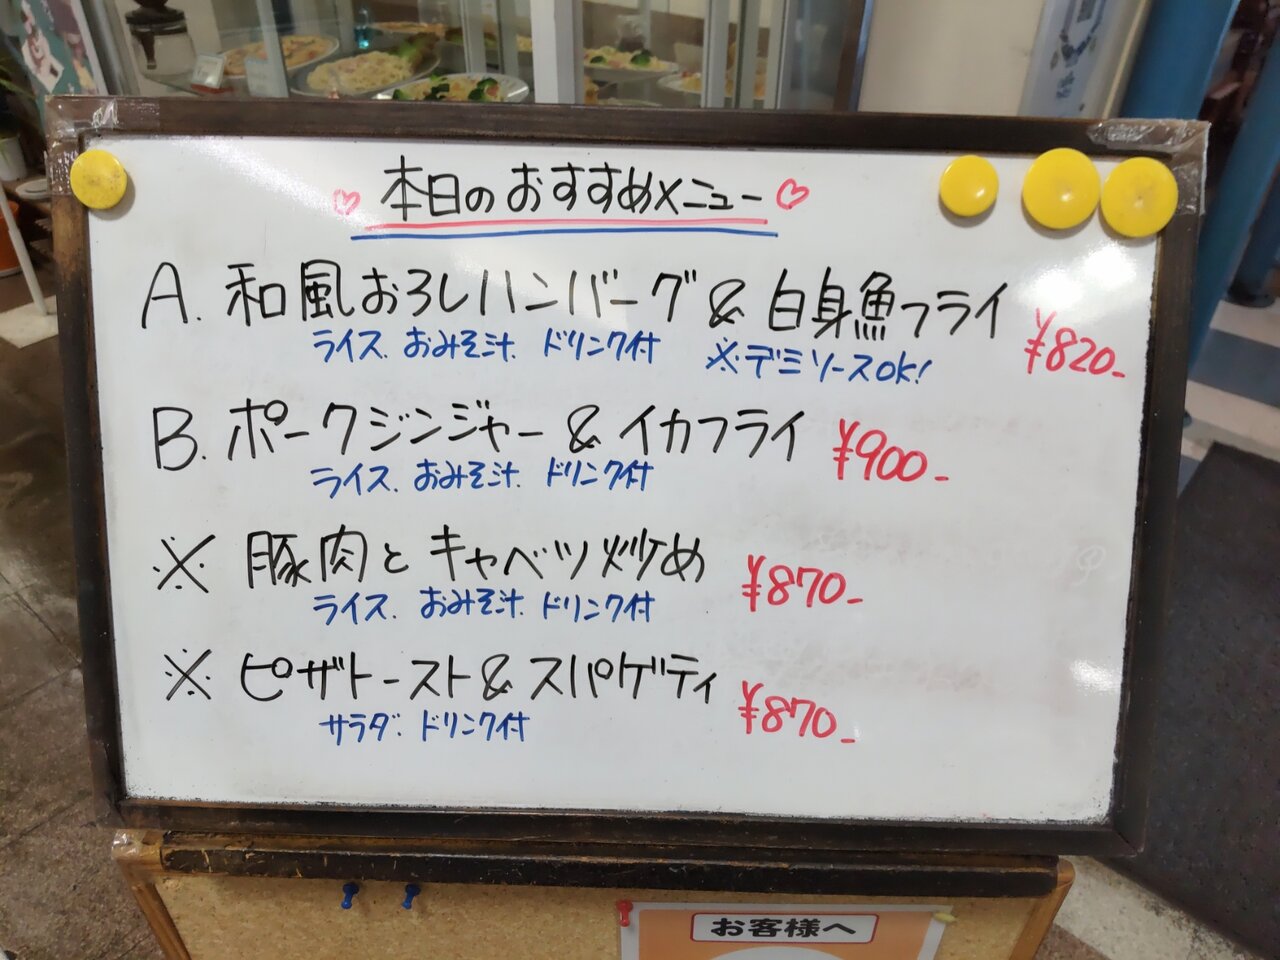 ♡ 本日のおすすめメニュー ♡
A. 和風おろしハンバーグ & 白身魚フライ ¥820-
ライス. おみそ汁. ドリンク付 ※デミソースOK!
B. ポークジンジャー & イカフライ ¥900-
ライス. おみそ汁. ドリンク付
※ 豚肉とキャベツ炒め ¥870-
ライス. おみそ汁. ドリンク付
※ ピザトースト & スパゲティ ¥870-
サラダ. ドリンク付
お客様へ